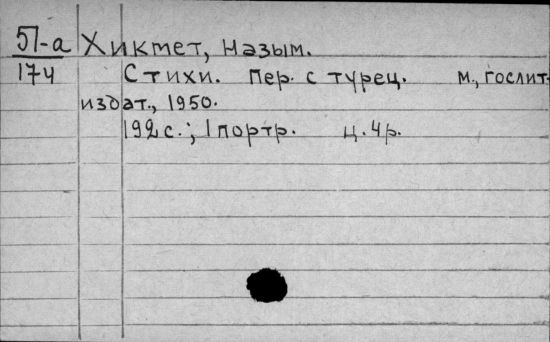 51-а Хикмет, Назым.
174 Стихи. Пер. с турец. М., Гослит-
издат., 1950.
192 с.; 1 портр. ц. 4 р.